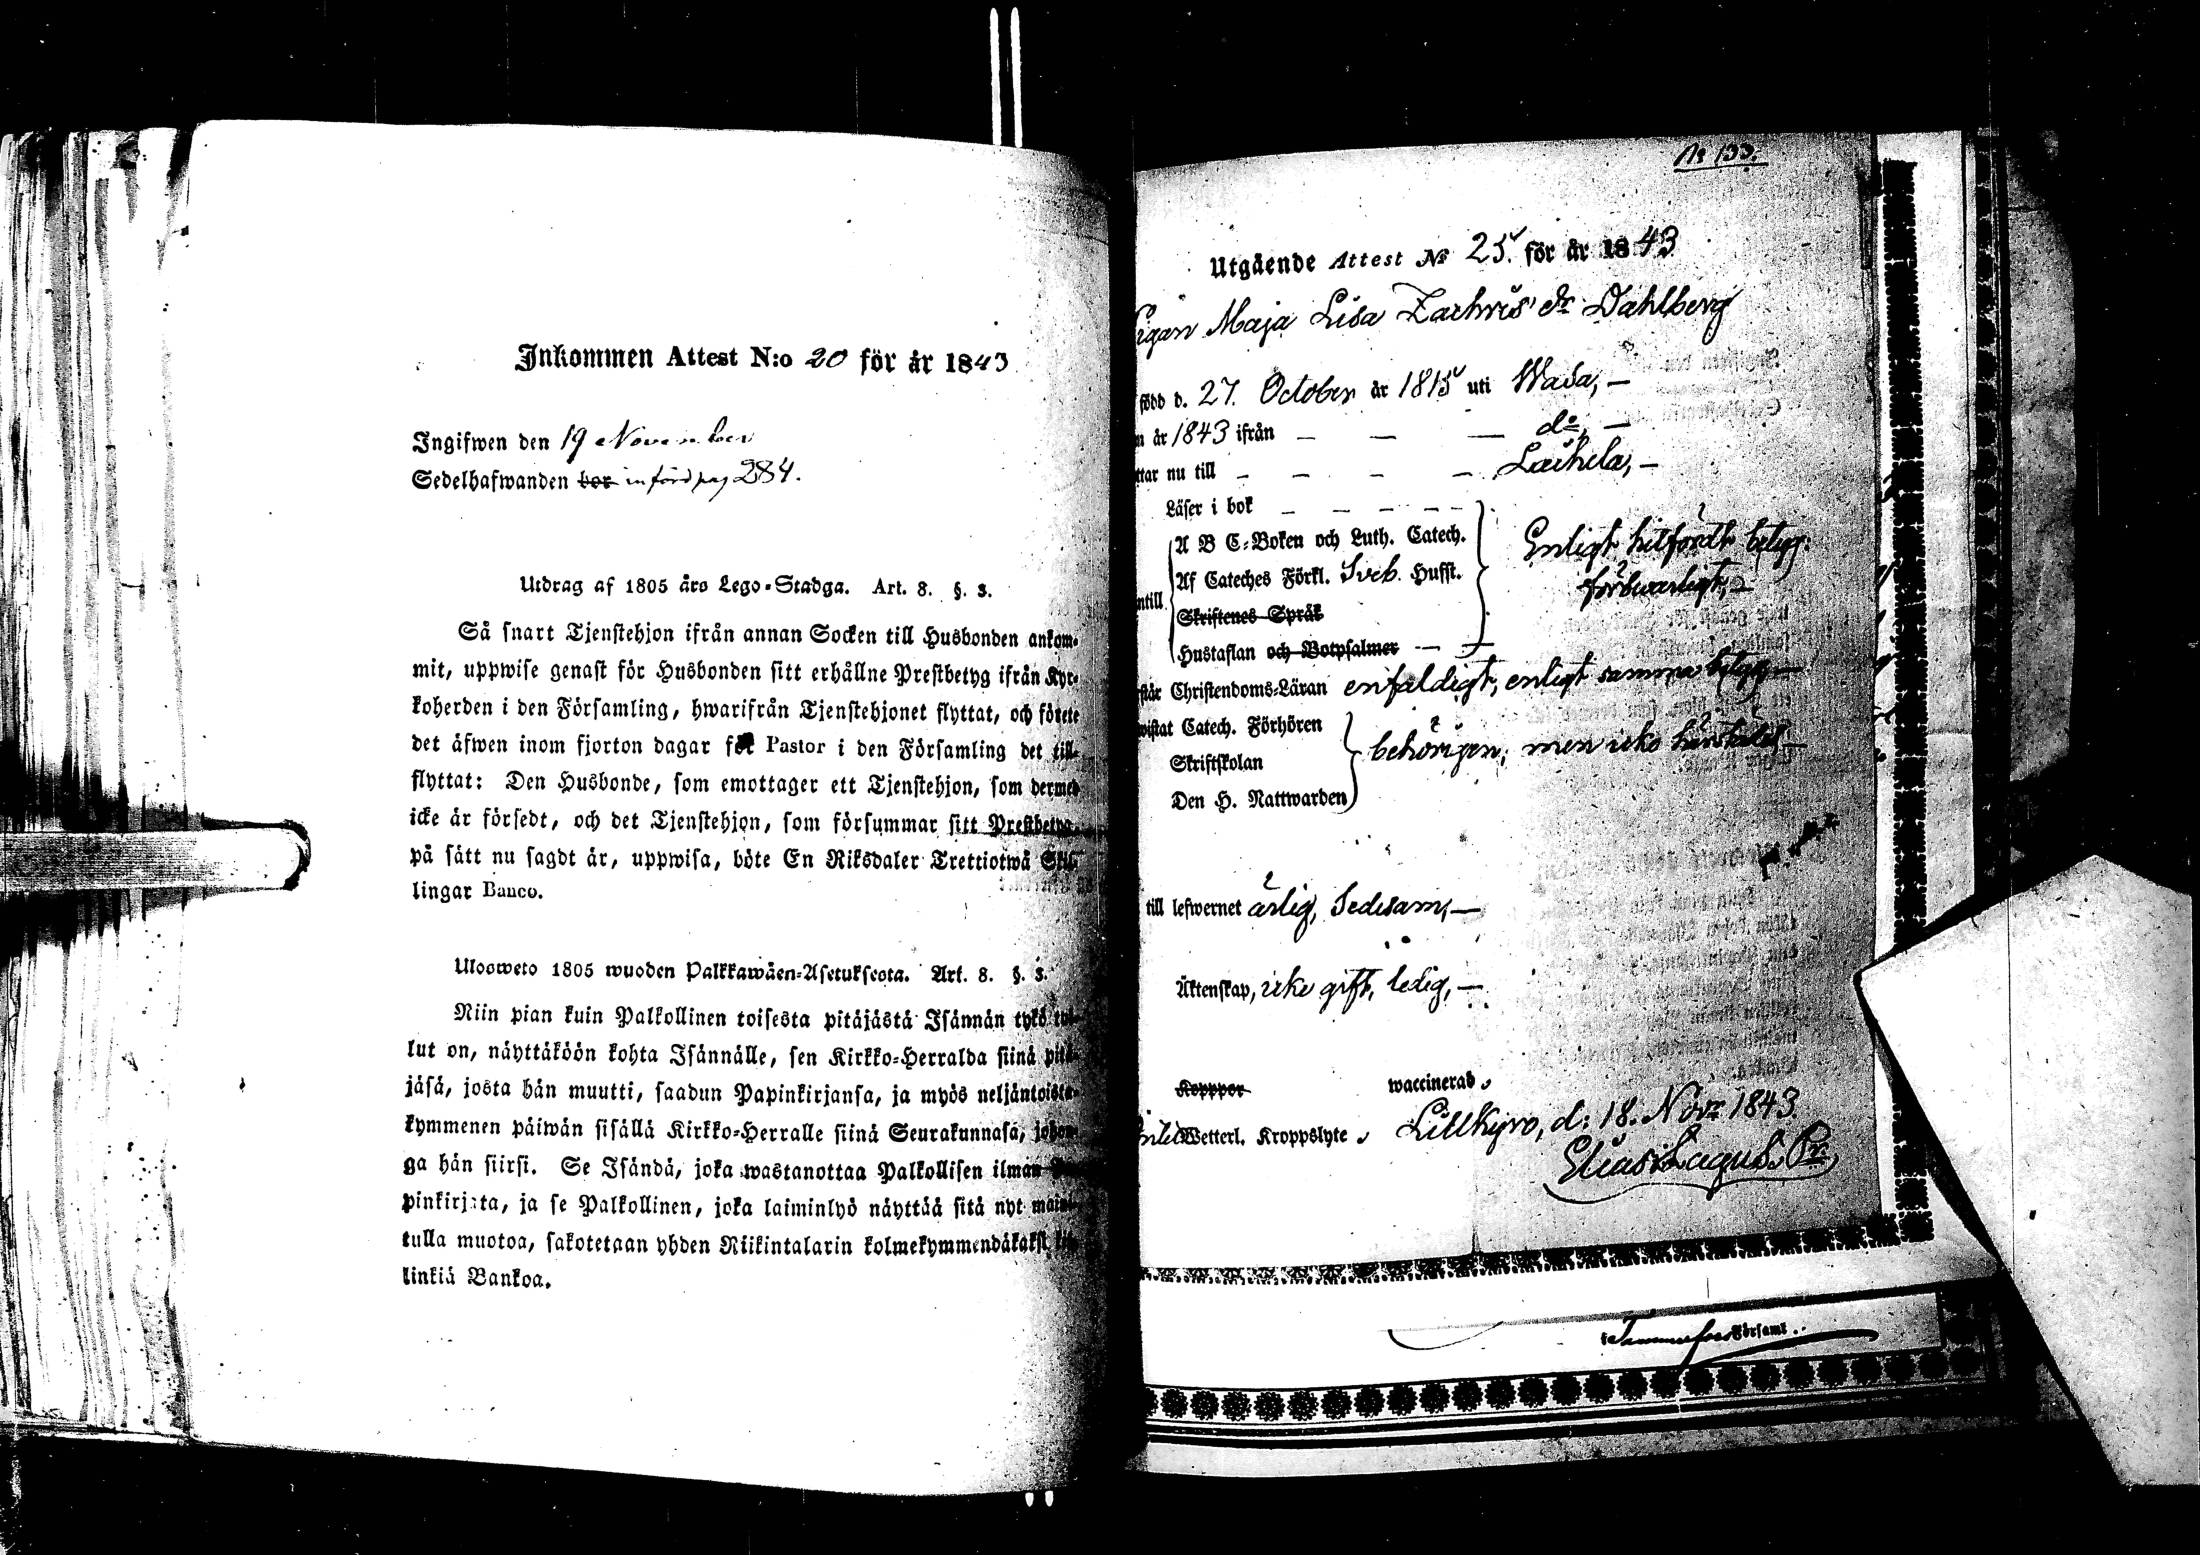 Inkommen Attest N:o 20 för år 1843
Ingifwen den 19 November
Sedelhafwanden bor införd pag 284.
Utdrag af 1805 års Lego-Stadga. Art. 8. §. 3.
Så snart Tjenstehjon ifrån annan Socken till Husbonden ankom-
mit, uppwise genast för Husbonden sitt erhållne Prestbetyg ifrån Kyr-
koherden i den Församling, hwarifrån Tjenstehjonet flyttat, och förete
det äfwen inom fjorton dagar för Pastor i den Församling det till-
flyttat: Den Husbonde, som emottager ett Tjenstehjon, som dermed
icke är försedt, och det Tjenstehjon, som försummar sitt Prestbetyg,
på sätt nu sagdt är, uppwisa, böte En Riksdaler Trettiotwå Skil-
lingar Banco.
Ulosweto 1805 wuoden Palkkawäen-Asetuksesta. Art. 8. §. 3.
Niin pian kuin Palkollinen toisesta pitäjästä Isännän tykö tul-
lut on, näyttäköön kohta Isännälle, sen Kirkko-Herralda siinä pitä-
jäsä, josta hän muutti, saadun Papinkirjansa, ja myös neljäntoista-
kymmenen päiwän sisällä Kirkko-Herralle siinä Seurakunnasa, johon-
ga hän siirsi. Se Isändä, joka wastanottaa Palkollisen ilman Pa-
pinkirjata, ja se Palkollinen, joka laiminlyö näyttää sitä nyt maini-
tulla muotoa, sakotetaan yhden Riikintalarin kolmekymmendäkaksi kil-
linkiä Bankoa.
No 133.
Utgående Attest No 25. för år 1843
Pigan Maja Lisa Zachris dr Dahlberg
född d. 27. October år 1815 uti Wasa, —
n år 1843 ifrån — — — do, —
ttar nu till — — — — Laihela, —
Läser i bok — — — — —
A B C-Boken och Luth. Catech.
Enligt hitfördt betyg:
Af Cateches Förkl. Sveb. Hufst.
förswarligt, —
ntill
Skriftenes Språk
Hustaflan och Botpsalmer — —
står Christendoms-Läran enfaldigt, enligt samma betyg —
wistat Catech. Förhören
behörigen, men icke härstädes —
Skriftskolan
Den H. Nattwarden
till lefwernet ärlig, sedesam, —
Äktenskap, icke gift, ledig, —
Kopppor waccinerad,
Wetterl. Kroppslyte, Lillkyro, d: 18. Novr 1843.
Elias Lagus. Pr.
i Tammerfors Församl.